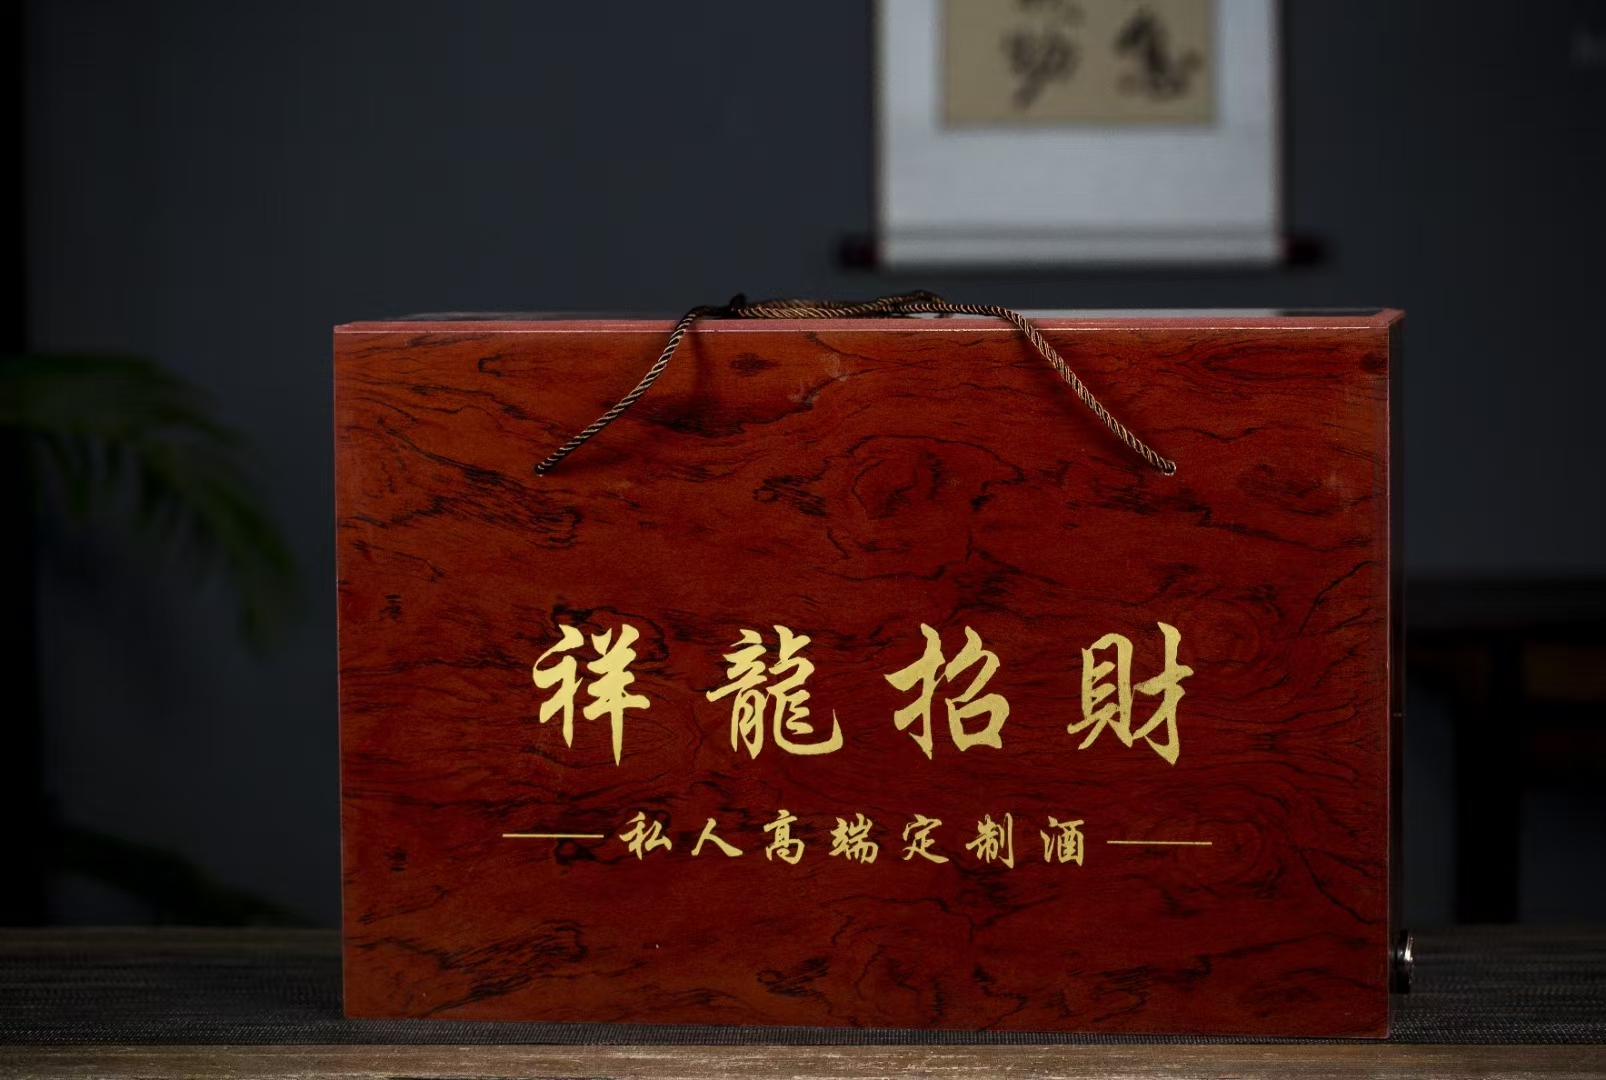 祥龍招財
私人高端定制酒